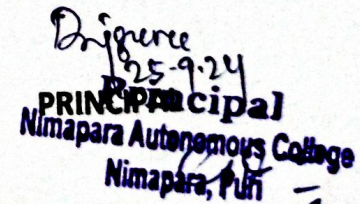 25-9-24
PRINCIPAL
Principal
Nimapara Autonomous College
Nimapara, Puri